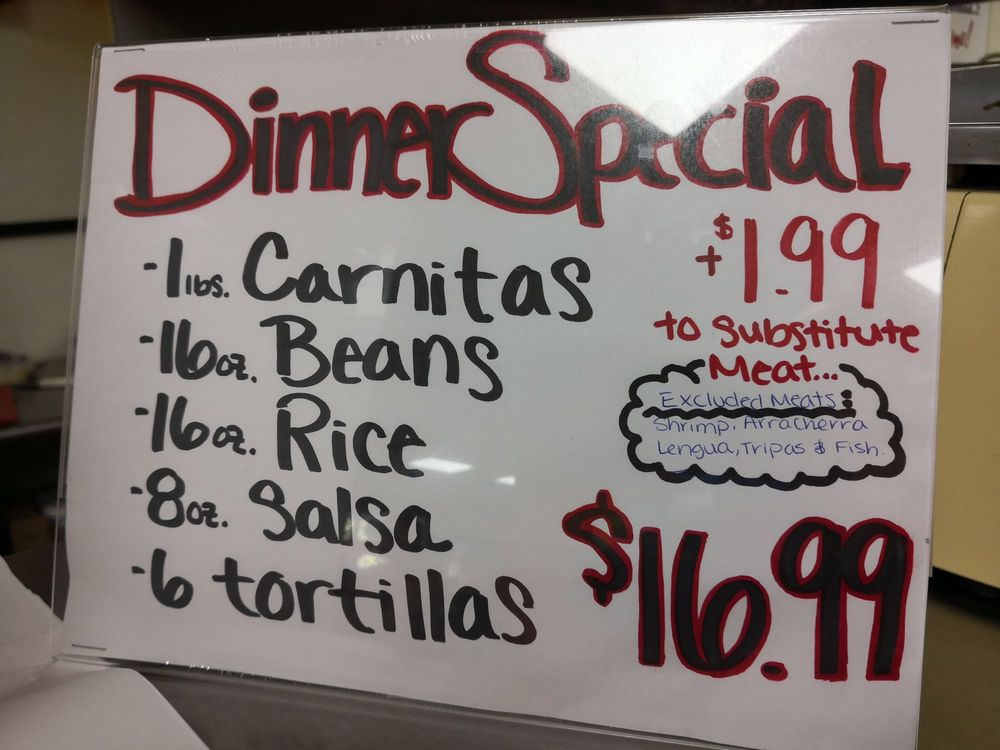 Dinner Special
-1 lbs. Carnitas
-16 oz. Beans
-16 oz. Rice
-8 oz. Salsa
-6 tortillas
+$1.99
to Substitute
Meat...
Excluded Meats:
Shrimp, Arracherra
Lengua, Tripas & Fish.
$16.99